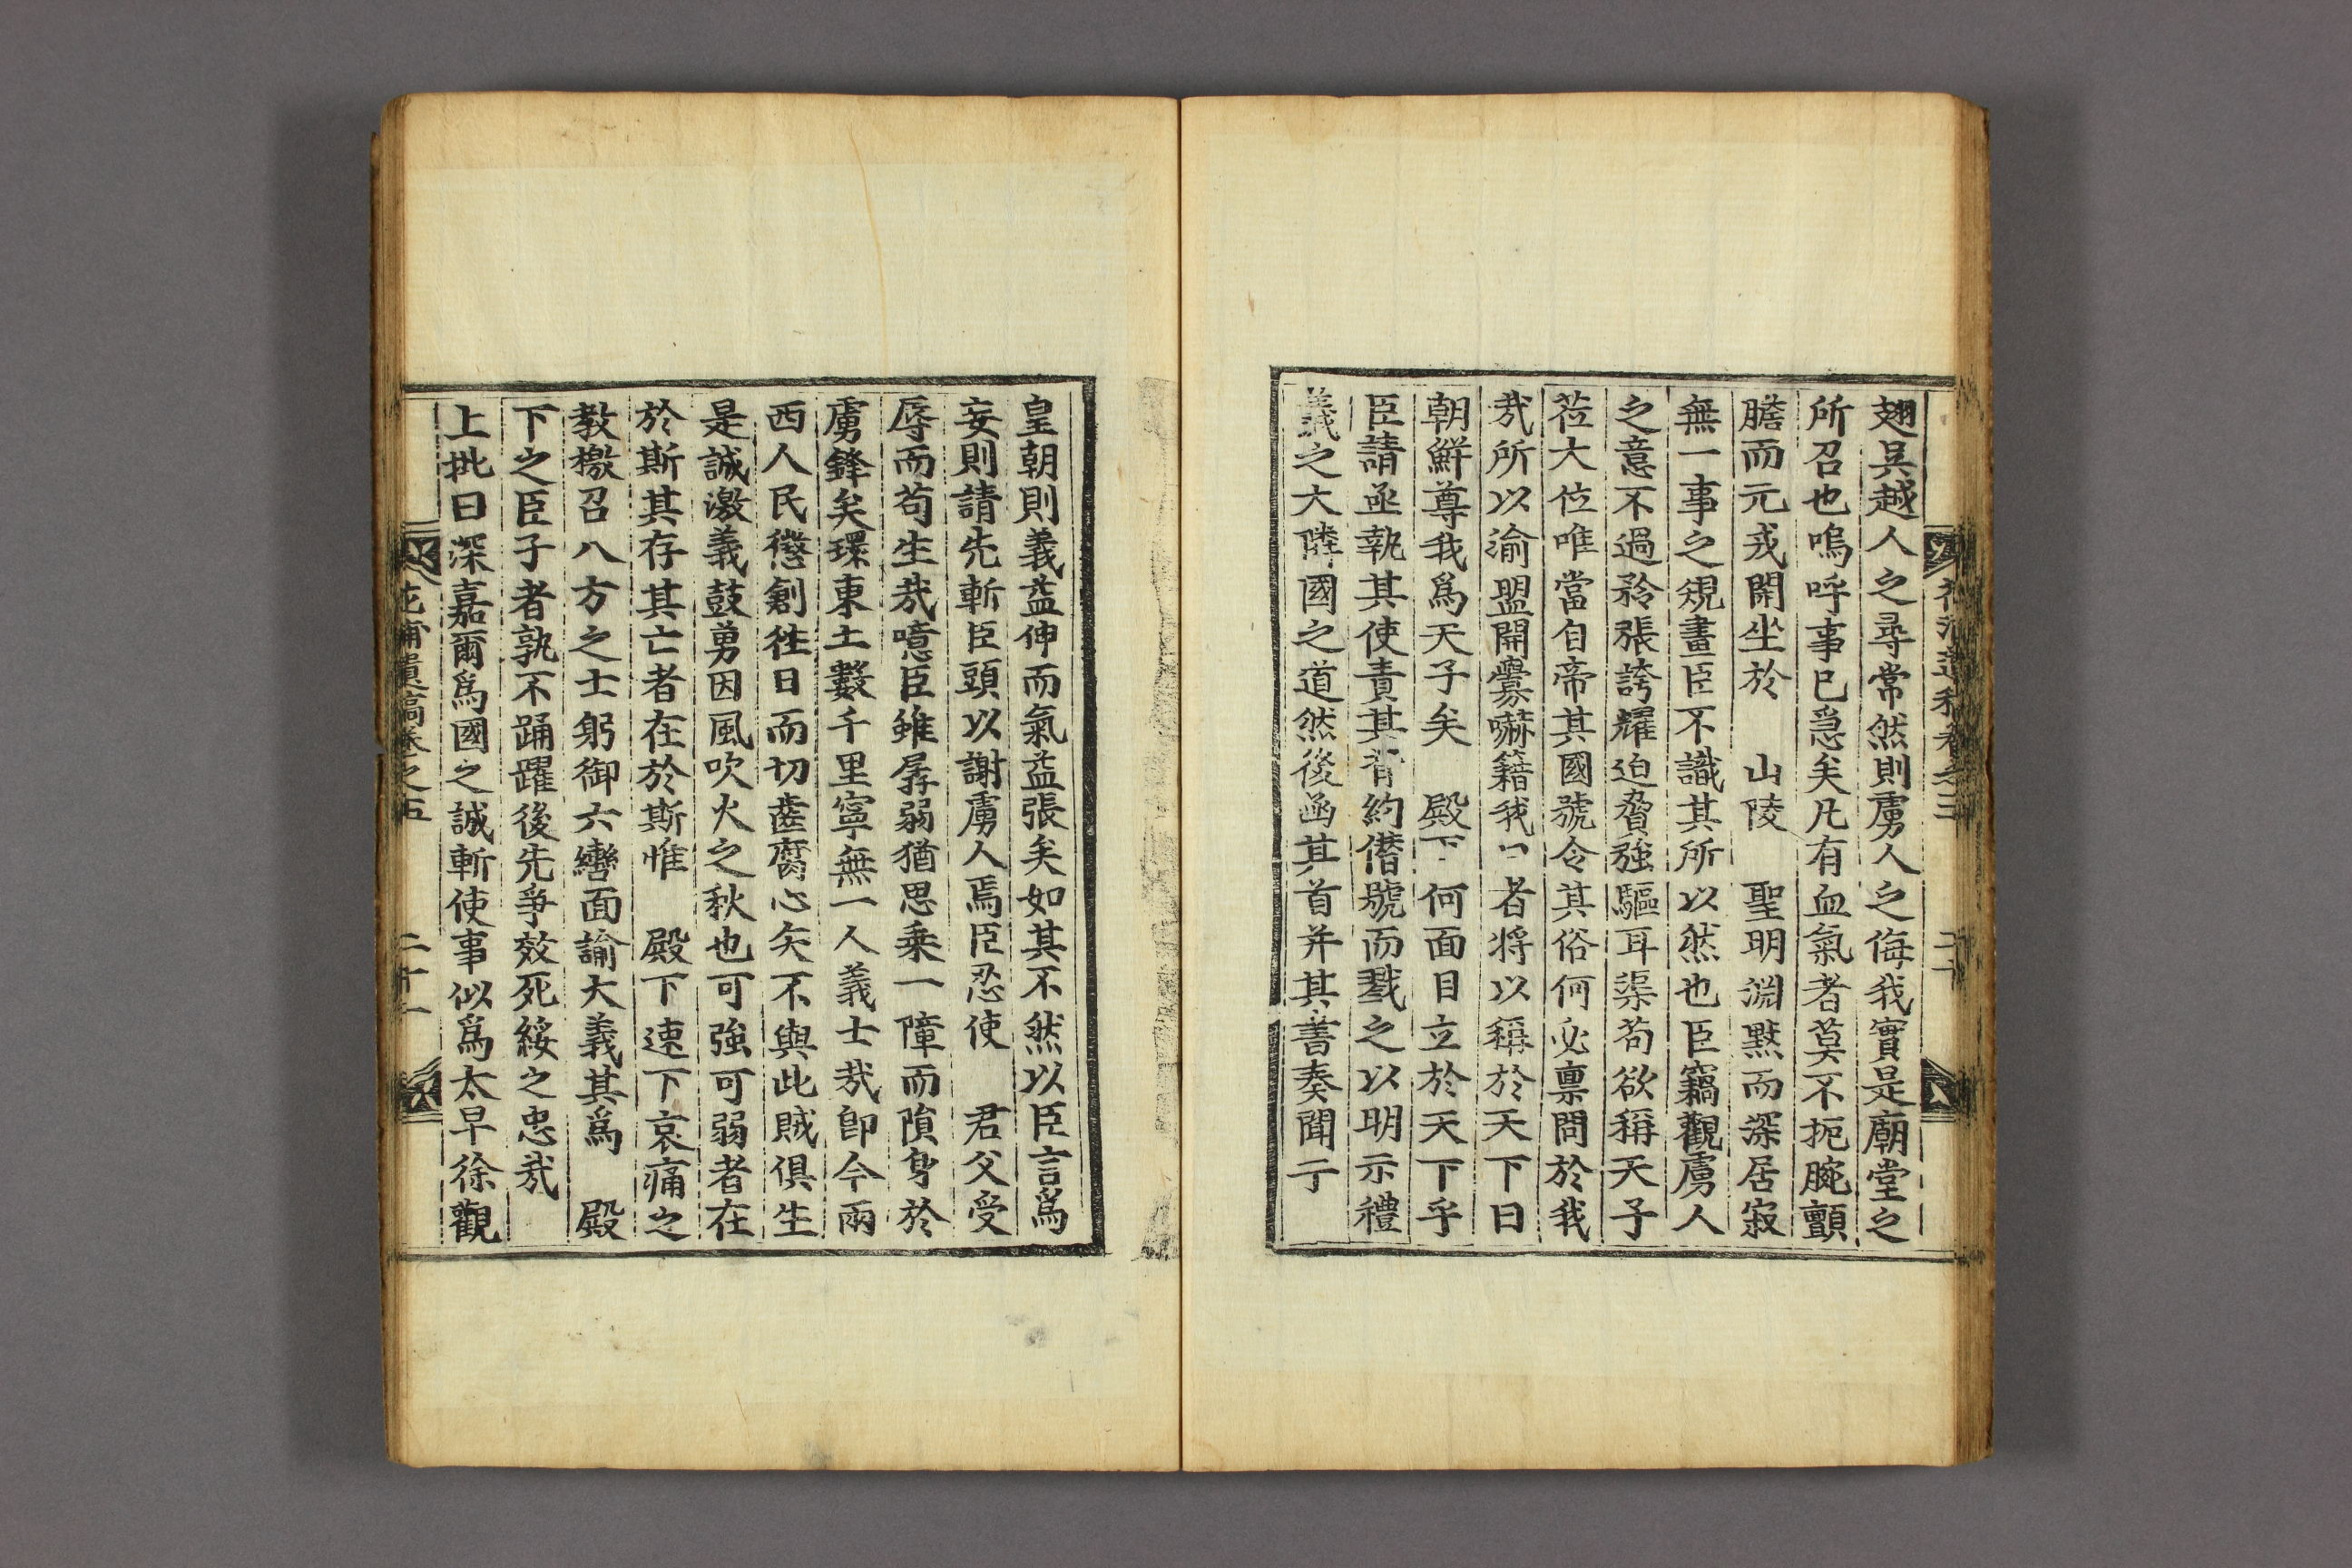 翅吴越人之尋常然則虜人之侮我實是廟堂之
所召也嗚呼事已急矣凡有血氣者莫不扼腕顫
膽而元戎閑坐於 山陵 聖明淵黙而深居寂
無一事之規畫臣不識其所以然也臣竊觀虜人
之意不過矜張誇耀迫脅強驅耳渠苟欲稱天子
莅大位唯當自帝其國號令其俗何必禀問於我
㢤所以渝盟開釁嚇籍我 者将以稱於天下曰
朝鮮尊我爲天子矣 殿下 何面目立於天下乎
臣請亟執其使責其背約僣號而戮之以明示禮
義之大隣國之道然後函其首并其書奏聞于
皇朝則義益伸而氣益張矣如其不然以臣言爲
妄則請先斬臣頭以謝虜人焉臣忍使 君父受
辱而苟生㢤噫臣雖孱弱猶思乗一障而隕身於
虜鋒矣環東土數千里寧無一人義士㢤卽今兩
西人民懲創徃日而切齒腐心矢不與此賊俱生
是誠激義鼓勇因風吹火之秋也可強可弱者在
於斯其存其亡者在於斯惟 殿下速下哀痛之
教檄召八方之士躬御六轡面諭大義其爲 殿
下之臣子者孰不踊躍後先爭效死綏之忠㢤
上批曰深嘉爾爲國之誠斬使事似爲太早徐觀
花浦遺稿卷之五 二十一